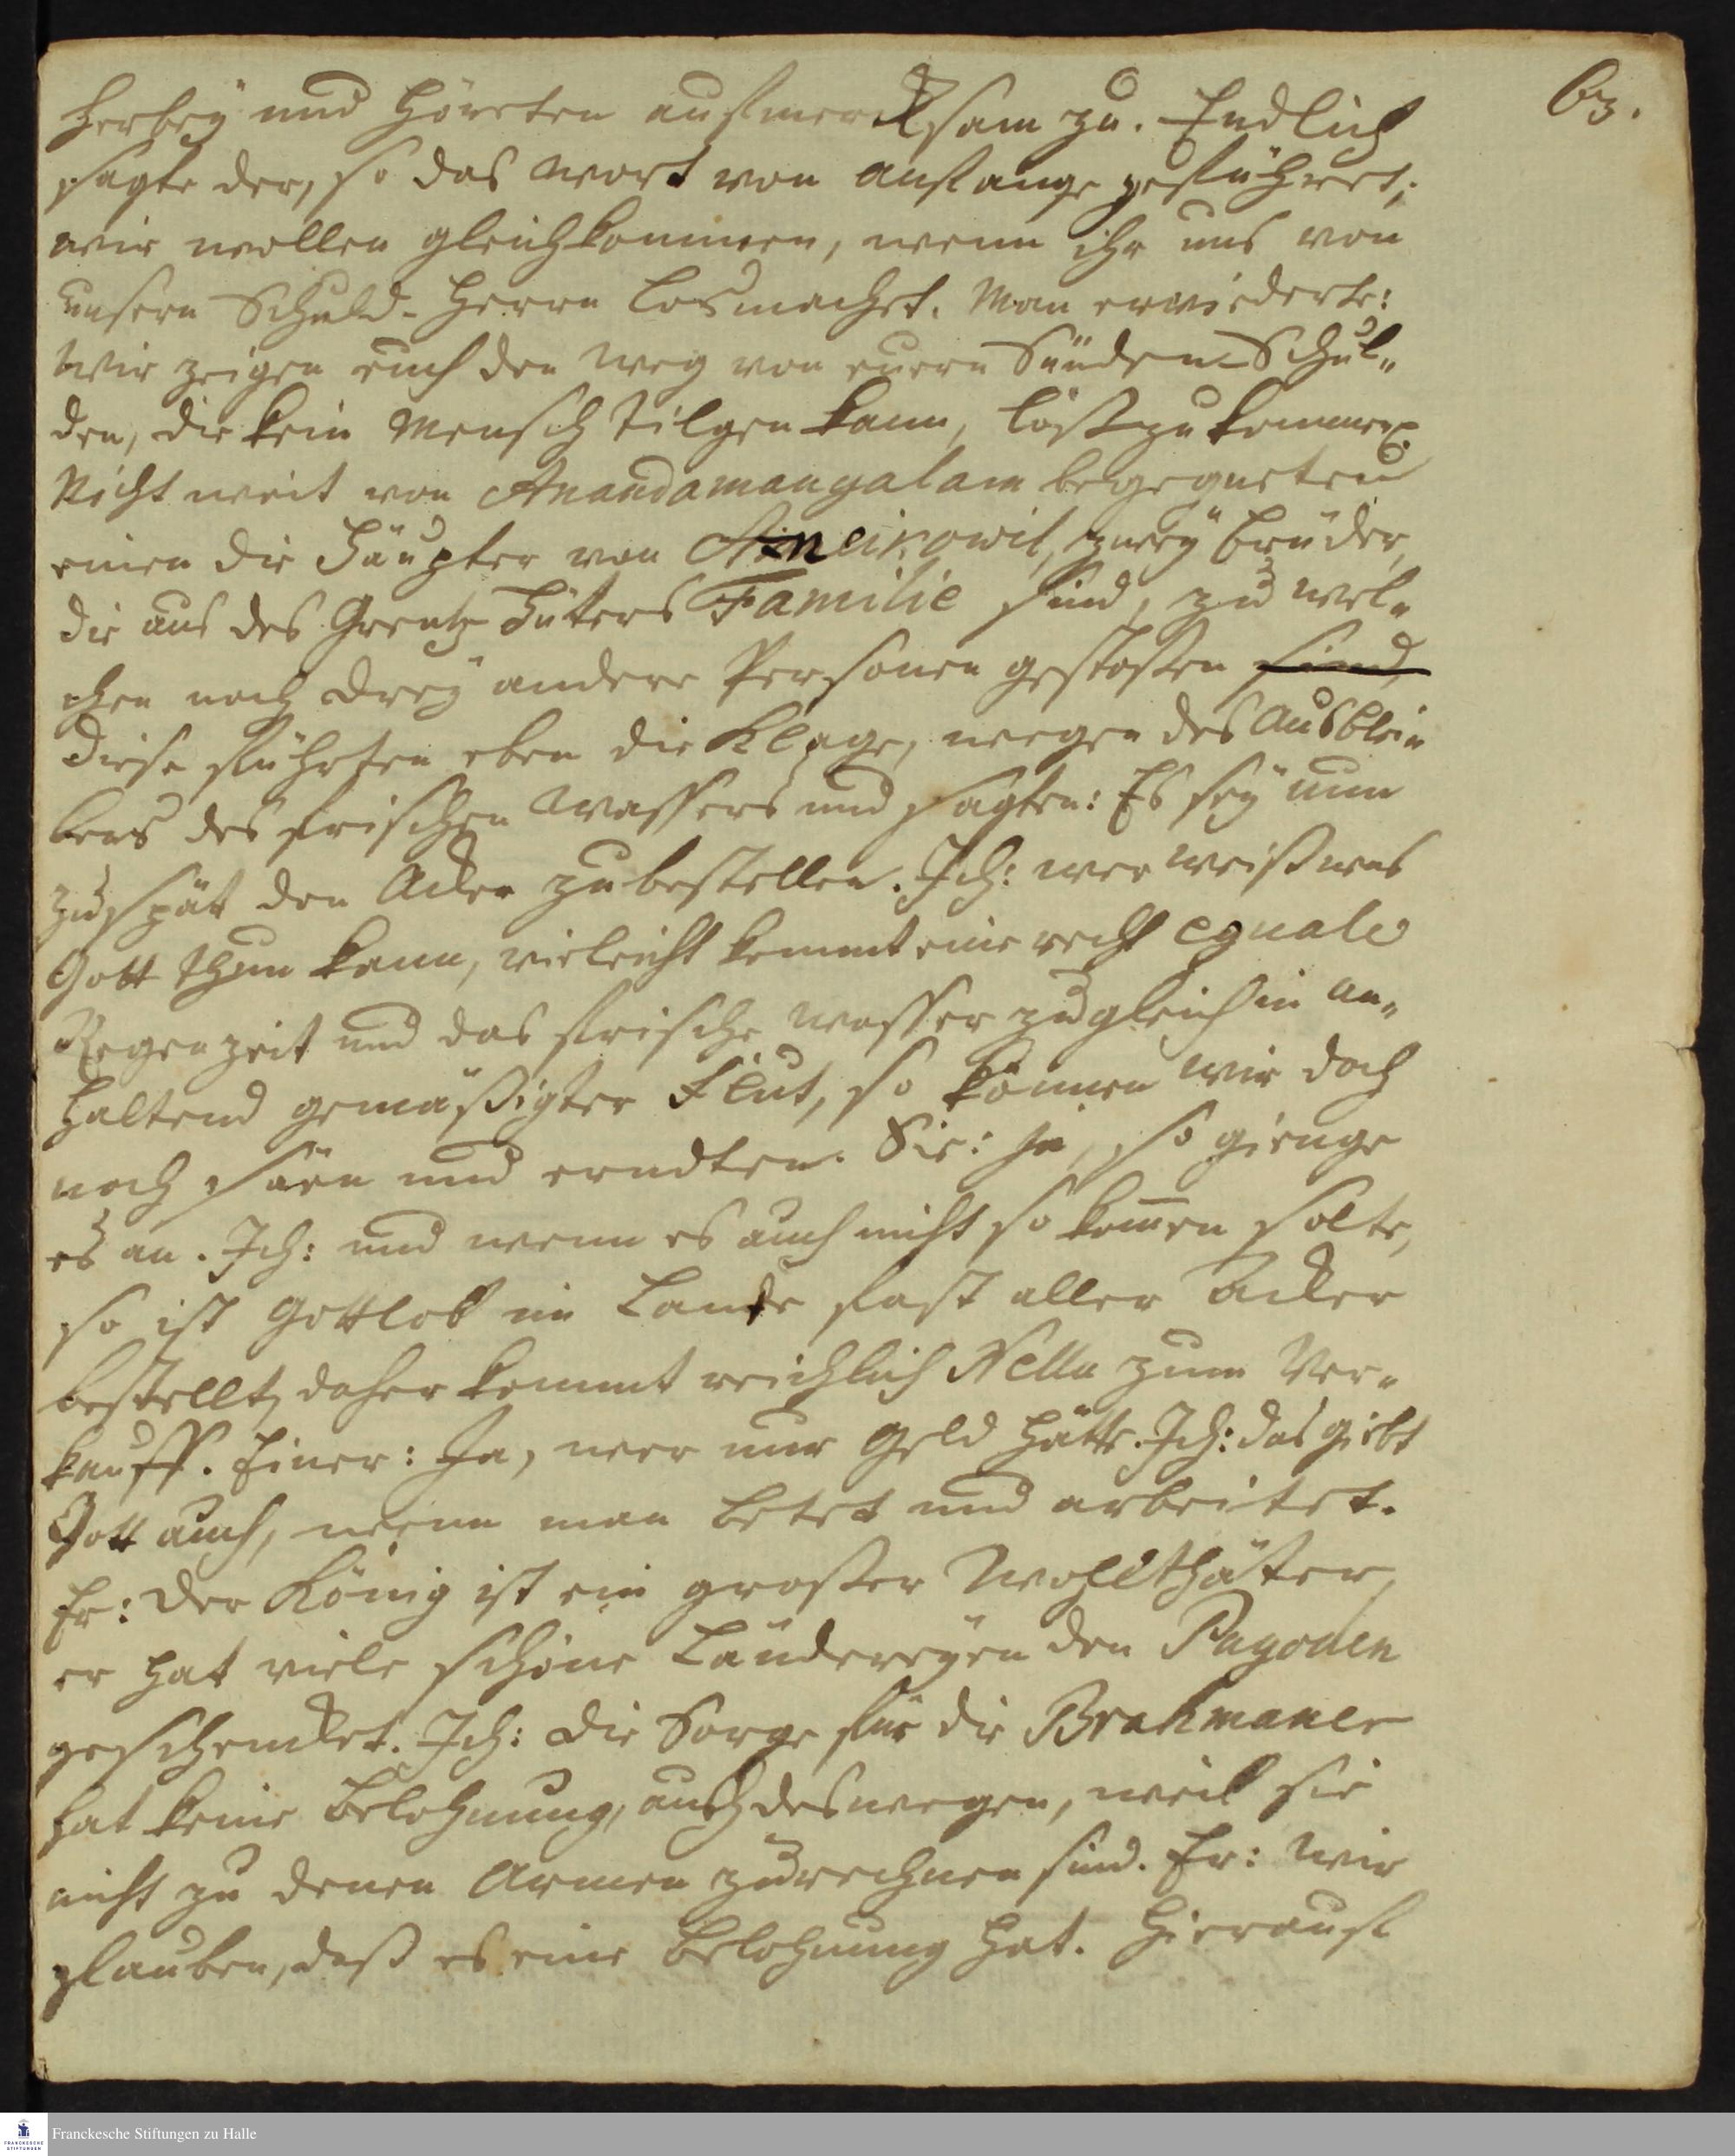 63.
herbey und höreten aufmercksam zu. Endlich
sagte der, so das Wort von Anfange geführet,
wir wollen gleich kommen, wenn ihr uns von
unsern Schuld-Herrn losmachet. Man erwiederte:
Wir zeigen euch den Weg von euern Sünden-Schul„
den, die kein Mensch tilgen kann, loßzukommen.
Nicht weit von Anandamangalam begegneten
einen die Häupter von zwey Brüder,
die aus des Grentz-Hüters Familie sind, zu wel„
chen noch drey andere Personen gestoßen sind
Diese führten eben die Klage, wegen des Ausblei„
bens des frischen Wassers und sagten: Es sey nun
zu spät den Acker zu bestellen. Ich: wer weiß was
Gott thun kann, vieleicht kommt eine recht egnale
Regenzeit und das frische Wasser zugleich in an„
haltend gemäßigter Flut, so können wir doch
noch säen und erndten. Sie: ja, so gienge
es an. Ich: und wenn es auch nicht so kom̅en solte,
so ist Gottlob im Lande fast aller Acker
bestellt, daher kommt reichlich Nellu zum Ver„
kauff. Einer: Ja, wer nur Geld hätte. Ich: das giebt
Gott auch, wenn man betet und arbeitet.
Er: Der König ist ein großer Wohlthäter,
er hat viele schöne Ländereyen den Pagoden
geschencket. Ich: die Sorge für die Brahmaner
hat keine Belohnung, auch deswegen, weil sie
nicht zu denen Armen zu rechnen sind. Er: Wir
glauben, daß es eine Belohnung hat. Hierauf
Franckesche Stiftungen zu Halle
FRANCKESCHE
STIFTUNGEN